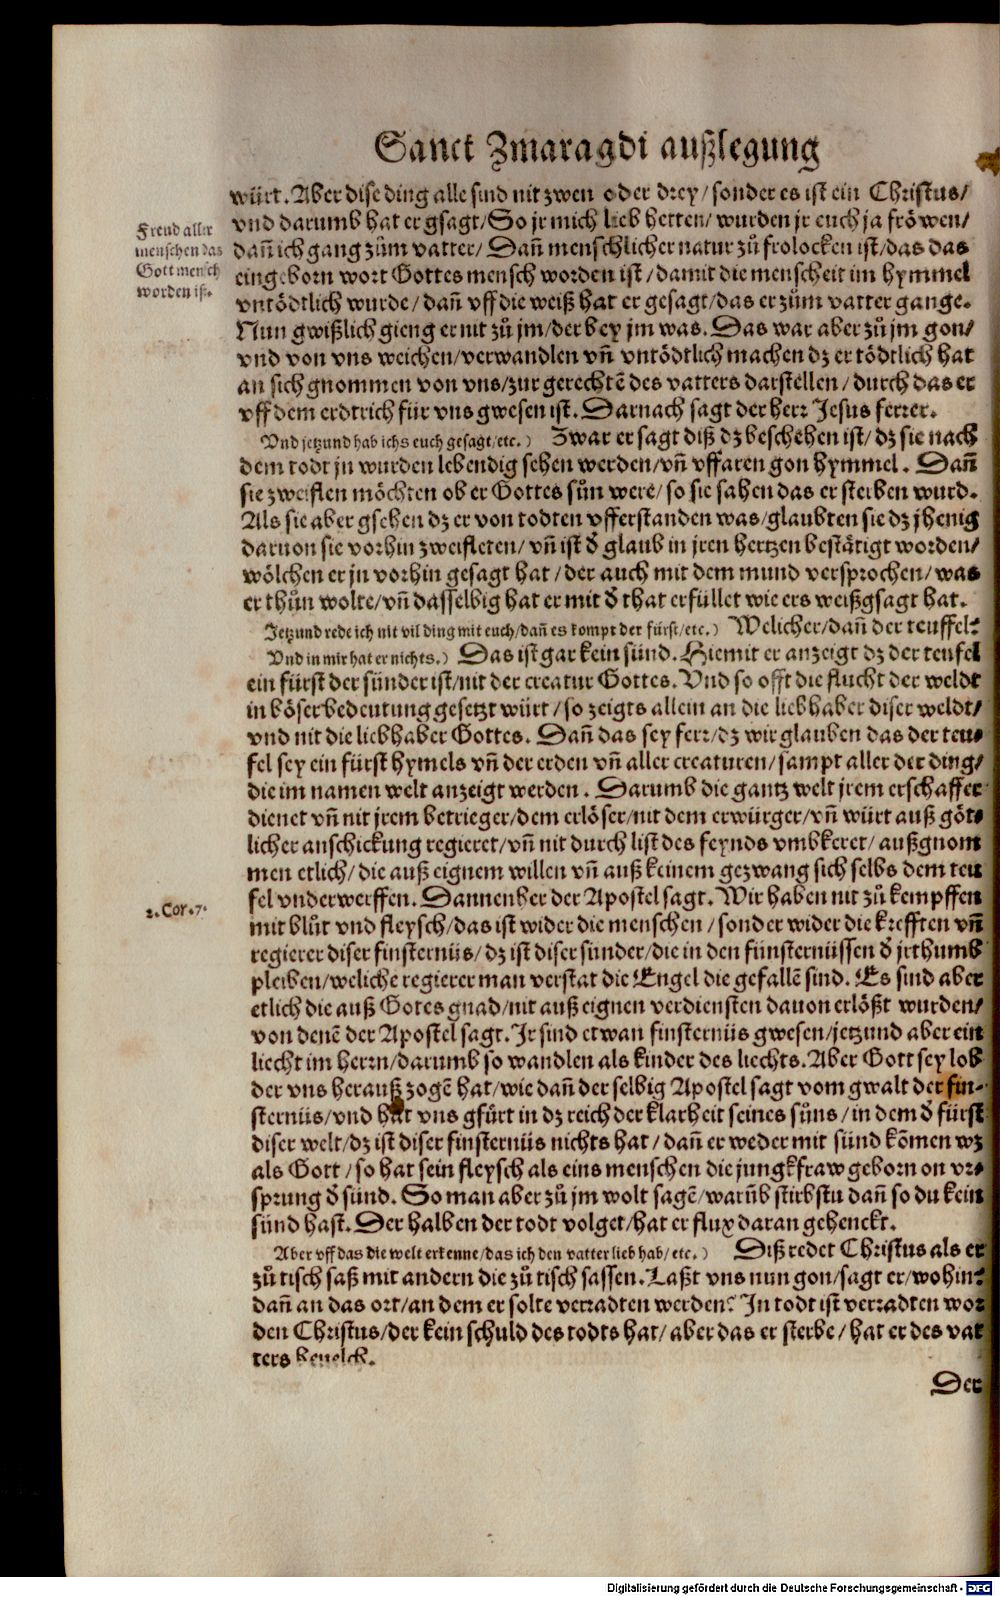 Sanct Zmaragdi außlegung
würt. Aber dise ding alle sind nit zwen oder drey / sonder es ist ein Christus /
vnd darumb hat er gsagt / So jr mich lieb hetten / wurden jr euch ja fröwen /
dañ ich gang zům vatter / Dañ menschlicher natur zů frolocken ist / das das
eingeborn wort Gottes mensch worden ist / damit die menscheit im hymmel
vntödtlich wurde / dañ vff die weiß hat er gesagt / das er zům vatter gange.
Nun gwißlich gieng er nit zů jm / der bey jm was. Das war aber zů jm gon /
vnd von vns weichen / verwandlen vñ vntödtlich machen dz er tödtlich hat
an sich gnommen von vns / zur gerechtẽ des vatters darstellen / durch das er
vff dem erdtrich für vns gwesen ist. Darnach sagt der herr Jesus ferrer.
Vnd jetzund hab ichs euch gesagt / etc. ) Zwar er sagt diß dz beschehen ist / dz sie nach
dem todt jn wurden lebendig sehen werden / vñ vffaren gon hymmel. Dañ
sie zweiflen möchten ob er Gottes sůn were / so sie sahen das er sterben wurd.
Als sie aber gsehen dz er von todten vfferstanden was / glaubten sie dz jhenig
daruon sie vorhin zweifleten / vñ ist ð glaub in jren hertzen bestätigt worden /
wölchen er jn vorhin gesagt hat / der auch mit dem mund versprochen / was
er thůn wolte / vñ dasselbig hat er mit ð that erfüllet wie ers weißgsagt hat.
Jetzund rede ich nit vil ding mit euch / dañ es kompt der fürst / etc. ) Welicher / dañ der teuffel?
Vnd in mir hat er nichts. ) Das ist gar kein sünd. Hiemit er anzeigt dz der teufel
ein fürst der sünder ist / nit der creatur Gottes. Vnd so offt die flucht der weldt
in böser bedeutung gesetzt würt / so zeigts allein an die liebhaber diser weldt /
vnd nit die liebhaber Gottes. Dañ das sey ferr / dz wir glauben das der teu⸗
fel sey ein fürst hymels vñ der erden vñ aller creaturen / sampt aller der ding /
die im namen welt anzeigt werden. Darumb die gantz welt jrem erschaffer
dienet vñ nit jrem betrieger / dem erlöser / nit dem erwürger / vñ würt auß göt⸗
licher anschickung regieret / vñ nit durch list des feynds vmbkeret / außgnom
men etlich / die auß eignem willen vñ auß keinem gezwang sich selbs dem teu
fel vnderwerffen. Dannenher der Apostel sagt. Wir haben nit zů kempffen
mit blůt vnd fleysch / das ist wider die menschen / sonder wider die krefften vñ
regierer diser finsternüs / dz ist diser sünder / die in den fünsternüssen ð jrthumb
pleiben / weliche regierer man verstat die Engel die gefallẽ sind. Es sind aber
etlich die auß Gotes gnad / nit auß eignen verdiensten dauon erlößt wurden /
von denẽ der Apostel sagt. Jr sind etwan finsternüs gwesen / jetzund aber ein
liecht im herrn / darumb so wandlen als kinder des liechts. Aber Gott sey lob
der vns herauß zogẽ hat / wie dañ der selbig Apostel sagt vom gwalt der fin⸗
sternüs / vnd hat vns gfürt in dz reich der klarheit seines sůns / in dem ð fürst
diser welt / dz ist diser finsternüs nichts hat / dañ er weder mit sünd kõmen wz
als Gott / so hat sein fleysch als eins menschen die jungkfraw geborn on vr⸗
sprung ð sünd. So man aber zů jm wolt sagẽ / warũb stirbstu dañ so du kein
sünd hast. Der halben der todt volget / hat er flux daran gehenckt.
Aber vff das die welt erkenne / das ich den vatter lieb hab / etc. ) Diß redet Christus als er
zů tisch saß mit andern die zů tisch sassen. Laßt vns nun gon / sagt er / wohin?
dañ an das ort / an dem er solte verradten werden? In todt ist verradten wor
den Christus / der kein schuld des todts hat / aber das er sterbe / hat er des vat
ters beuelch.
Der
Freud aller
menschen das
Gott mensch
worden ist.
2. Cor. 7.
Digitalisierung gefördert durch die Deutsche Forschungsgemeinschaft - DFG